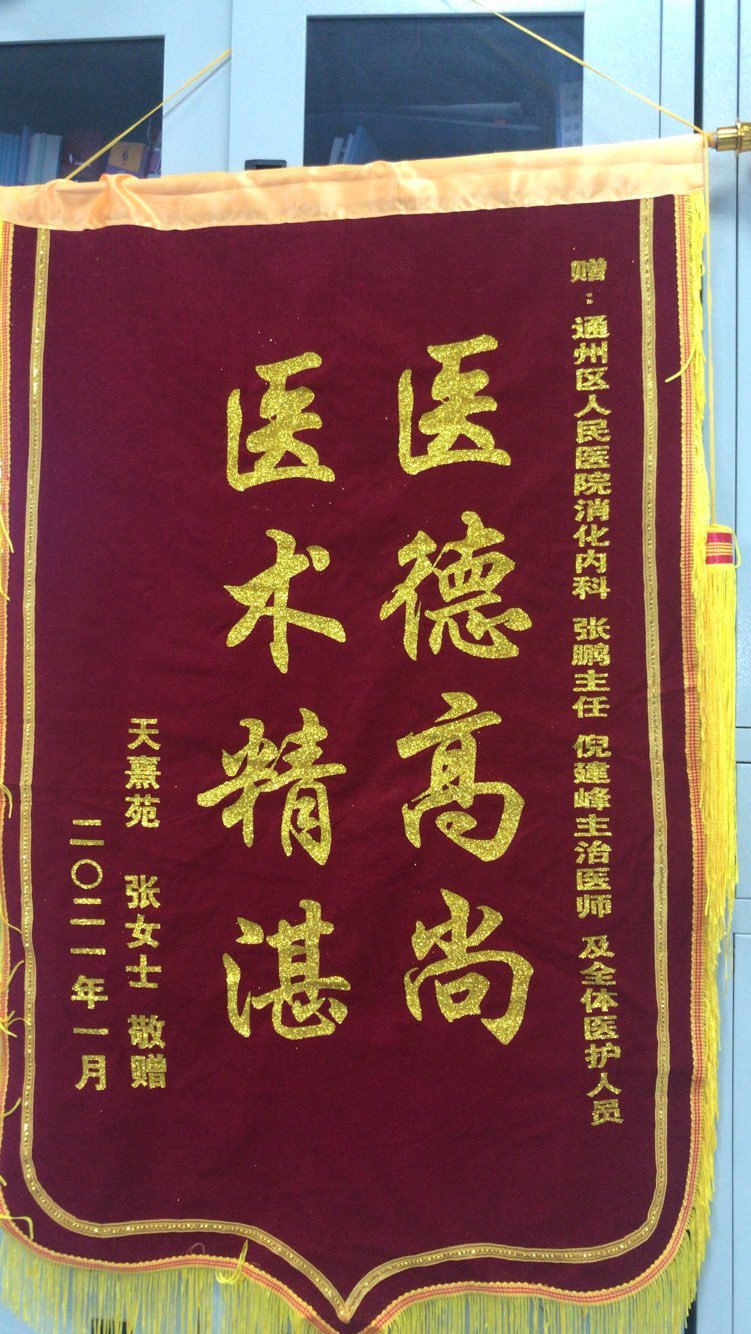 赠：通州区人民医院消化内科 张鹏主任 倪建峰主治医师 及全体医护人员
医德高尚
医术精湛
天熹苑 张女士 敬赠
二〇二一年一月
6